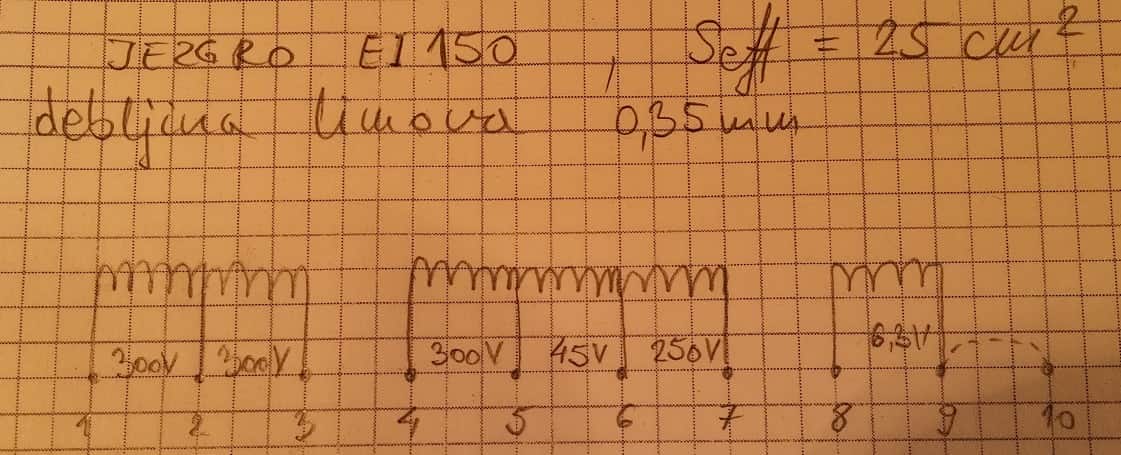 JEZGRO EI 150, Seff = 25 cm²
debljina limova 0,35 mm
300V 300V 300V 45V 250V 6,3V
1 2 3 4 5 6 7 8 9 10